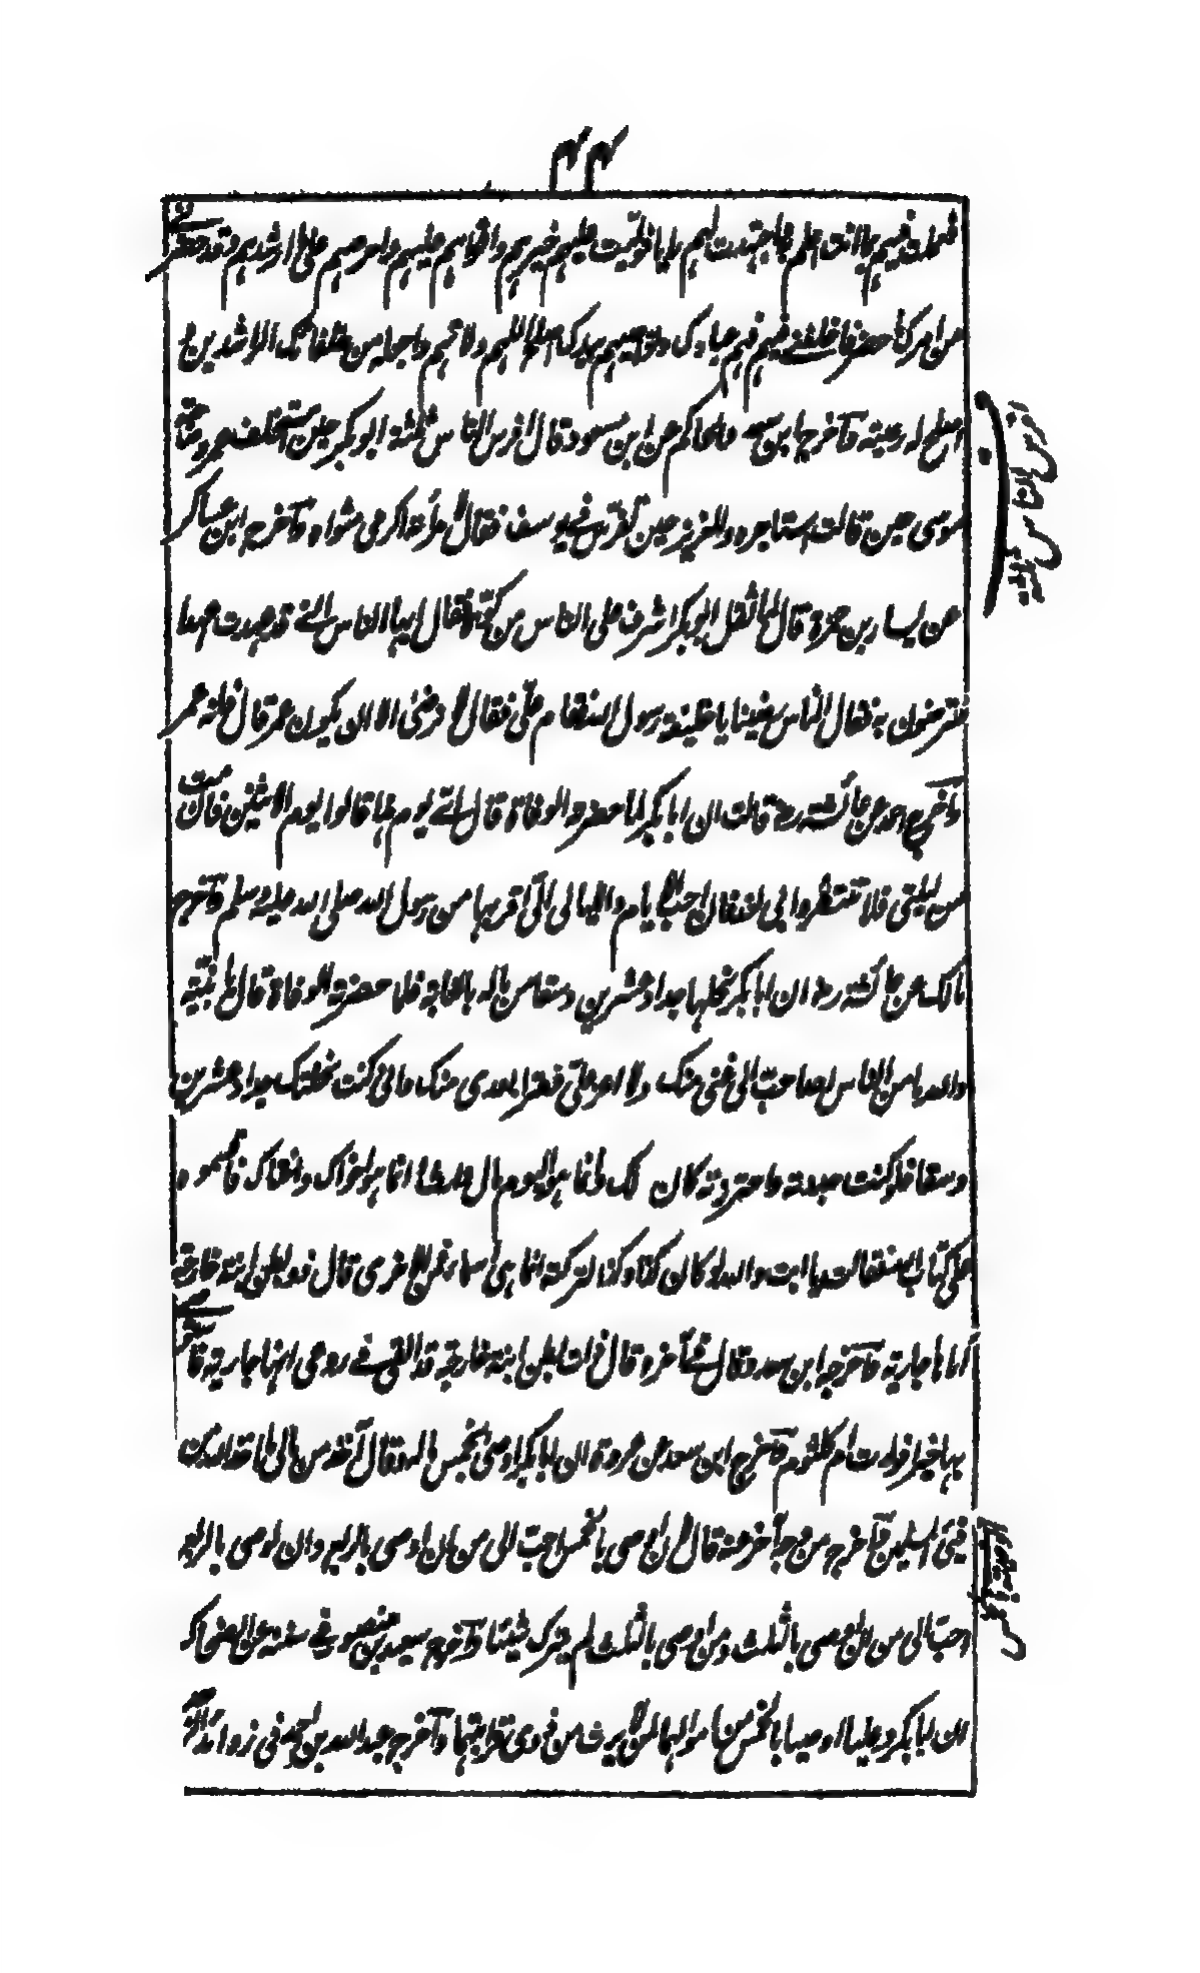 ۴۴
فعملت فيهم بما انت اعلم فاجتهدت لهم رايا فوليت عليهم خيرهم واقواهم عليهم واحرصهم على ما ارشدهم وقد حضرني
من امرك ما حضر فاخلفني فيهم فهم عبادك ونواصيهم بيدك اصلح اللهم ولاتهم واجعله من خلفائك الراشدين
اصلح له رعيته وآخرج ابن سعد والحاكم عن ابن مسعود قال افرس الناس ثلثة ابو بكر حين استخلف عمر وصاحبة
موسى حين قالت استاجره والعزيز حين تفرس في يوسف فقال لامرأته اكرمي مثواه وآخرج ابن عساكر
عن يسار بن حمزة قال لما ثقل ابو بكر اشرف على الناس من كوة فقال ايها الناس اني قد عهدت عهدا
افترضون به فقال الناس رضينا يا خليفة رسول الله فقام علي فقال لا نرضى الا ان يكون عمر قال فانه عمر
وآخرج احمد عن عائشة رض قالت ان ابا بكر لما حضرته الوفاة قال اي يوم هذا قالوا يوم الاثنين قال فان مت
من ليلتي فلا تنتظروا بي لغد فان احب الايام والليالي الي اقربها من رسول الله صلى الله عليه وسلم وآخرج
مالك عن عائشة رض ان ابا بكر نحلها جداد عشرين وسقا من ماله بالغابة فلما حضرته الوفاة قال يا بنية
والله ما من الناس احد احب الي غنى منك ولا اعز علي فقرا بعدي منك واني كنت نحلتك جداد عشرين
وسقا فلو كنت جددته واحترزته كان لك وانما هو اليوم مال وارث وانما هو اخواك واختاك فاقسموه
على كتاب الله فقالت يا ابت والله لو كان كذا وكذا لتركته انما هي اسماء فمن الاخرى قال ذو بطن ابنة خارجة
اراها جارية وآخرجه ابن سعد وقال في آخره قال ذات بطن ابنة خارجة قد القي في روعي انها جارية فاستوصي
بها خيرا فولدت ام كلثوم وآخرج ابن سعد عن عروة ان ابا بكر اوصى بخمس ماله وقال آخذ من مالي ما اخذ الله من
فيئ المسلمين وآخرج من وجه آخر عنه قال لان اوصي بالخمس احب الي من ان اوصي بالربع وان اوصي بالربع
احب الي من ان اوصي بالثلث ومن اوصى بالثلث لم يترك شيئا وآخرج سعيد بن منصور في سننه عن الضحاك
ان ابا بكر وعليا اوصيا بالخمس من اموالهما لمن لا يرث من ذوي قرابتهما وآخرج عبد الله بن احمد في زوائد الزهد
افرس الناس ثلثة